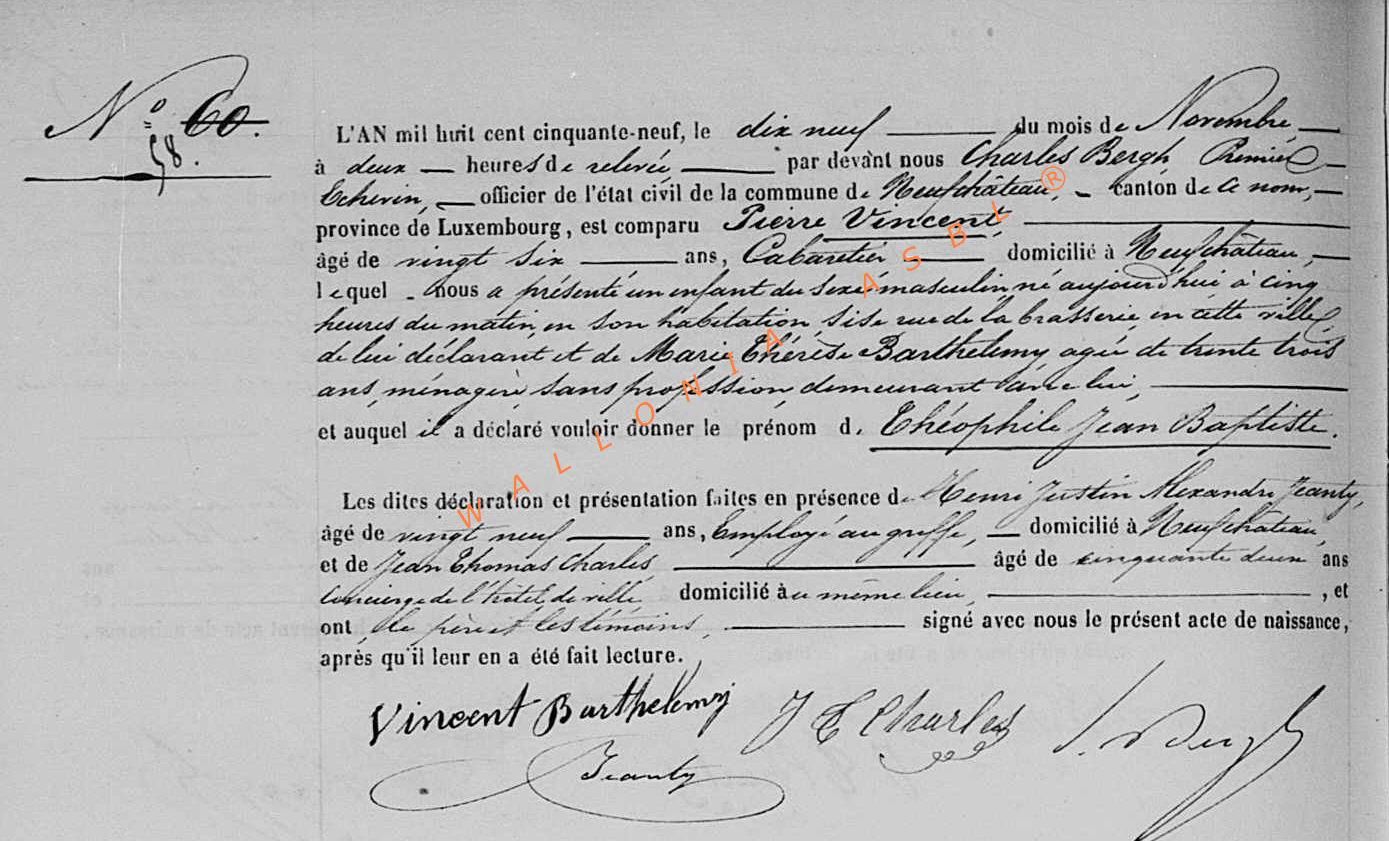 N° 60.
58.
L'AN mil huit cent cinquante-neuf, le dix neuf du mois de Novembre
à deux heures de relevée par devant nous Charles Bergh Premier
Echevin, officier de l'état civil de la commune de Neufchâteau, canton de ce nom,
province de Luxembourg, est comparu Pierre Vincent,
âgé de vingt six ans, Cabaretier domicilié à Neufchâteau,
lequel nous a présenté un enfant du sexe masculin né aujourd'hui à cinq
heures du matin, en son habitation, sise rue de la brasserie, en cette ville,
de lui déclarant et de Marie Thérèse Barthelemy agée de trente trois
ans, ménagère, sans profession, demeurant avec lui,
et auquel il a déclaré vouloir donner le prénom de Théophile Jean Baptiste.
Les dites déclaration et présentation faites en présence de Henri Justin Alexandre Jeanty,
âgé de vingt neuf ans, Employé au greffe, domicilié à Neufchâteau,
et de Jean Thomas Charles âgé de cinquante deux ans
Concierge de l'hôtel de ville domicilié au même lieu, , et
ont, le père et les témoins, signé avec nous le présent acte de naissance,
après qu'il leur en a été fait lecture.
Vincent Barthelemy J T Charles Bergh
Jeanty
WALLONIA ASBL ®